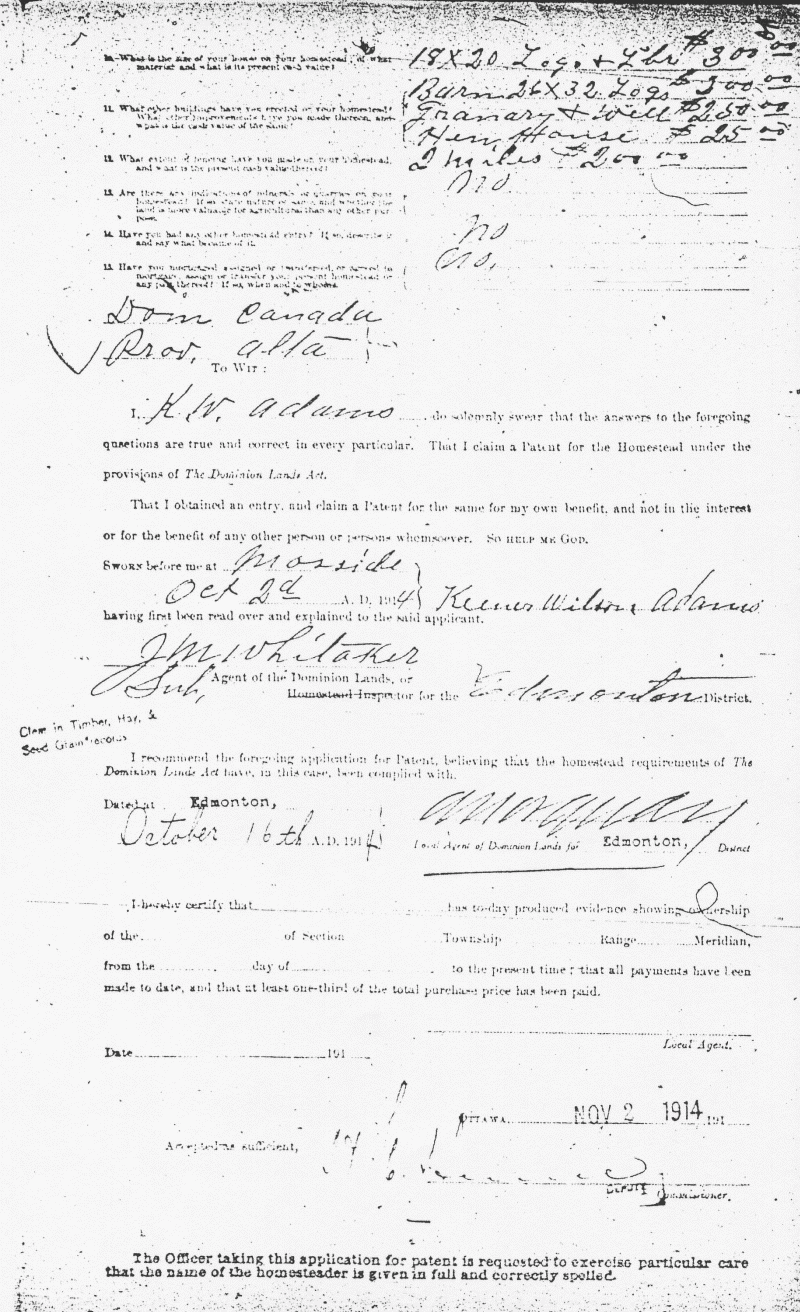 10. What is the size of your house on your homestead, of what 18 X 20 Logs & Lbr $300.00
material and what is its present cash value?
Barn 26 X 32 Logs $300.00
11. What other buildings have you erected on your homestead? Granary & Well $250.00
What other improvements have you made thereon, and
what is the cash value of the same? Hen House $25.00
12. What extent of fencing have you made on your homestead, 2 miles $200.00
and what is the present cash value thereof?
13. Are there any indications of minerals or quarries on your no
homestead? If so, state nature of same, and whether the
land is more valuable for agricultural than any other pur-
pose.
14. Have you had any other homestead entry? If so, describe it no
and say what became of it.
15. Have you mortgaged assigned or transferred, or agreed to no.
mortgage, assign or transfer your present homestead or
any part thereof? If so, when and to whom?
Dom Canada
Prov. Alta
To Wit:
I, K. W. Adams do solemnly swear that the answers to the foregoing
qusetions are true and correct in every particular. That I claim a Patent for the Homestead under the
provisions of The Dominion Lands Act.
That I obtained an entry, and claim a Patent for the same for my own benefit, and not in the interest
or for the benefit of any other person or persons whomsoever. So help me God.
Sworn before me at Mosside
Oct 2d A. D. 1914 Wilson Adams
having first been read over and explained to the said applicant.
J M Whitaker
Sub, Agent of the Dominion Lands, or
Homestead Inspector for the Edmonton District.
Clear in Timber, Hay, &
Seed Grain records
I recommend the foregoing application for Patent, believing that the homestead requirements of The
Dominion Lands Act have, in this case, been complied with.
Dated at Edmonton,
October 16th A.D. 1914 Local Agent of Dominion Lands for Edmonton, District
I hereby certify that has to-day produced evidence showing ownership
of the of Section Township Range Meridian,
from the day of to the present time; that all payments have been
made to date, and that at least one-third of the total purchase price has been paid.
Local Agent.
Date 191
Ottawa NOV 2 1914 191
Accepted as sufficient,
Deputy Commissioner.
The Officer taking this application for patent is requested to exercise particular care
that the name of the homesteader is given in full and correctly spelled.